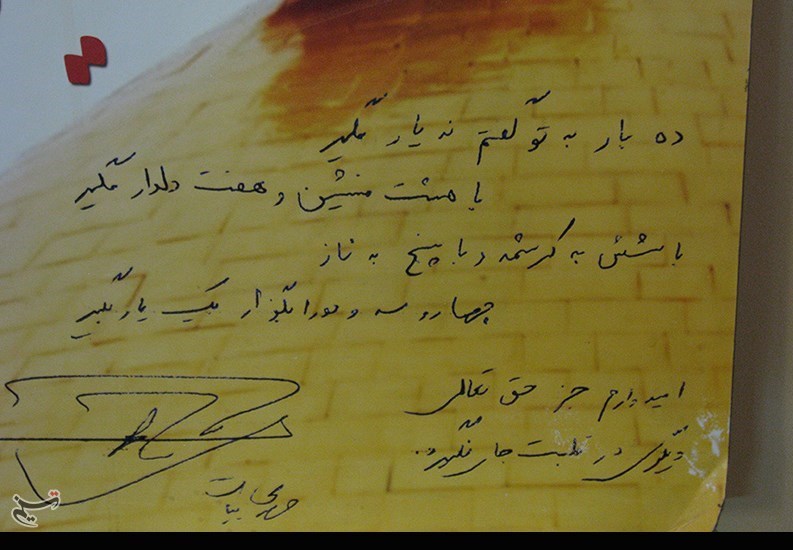 ده بار به تو گفتم نه یار مگیر
با هشت منشین و هفت دلدار مگیر
با شش به کرشمه و با پنج به ناز
چهار و سه و دو را بگذار یک یار بگیر
امیدوارم جز حق تعالی
دیگری در قلبت جای نگیرد.
مهدی بیات
تسنیم